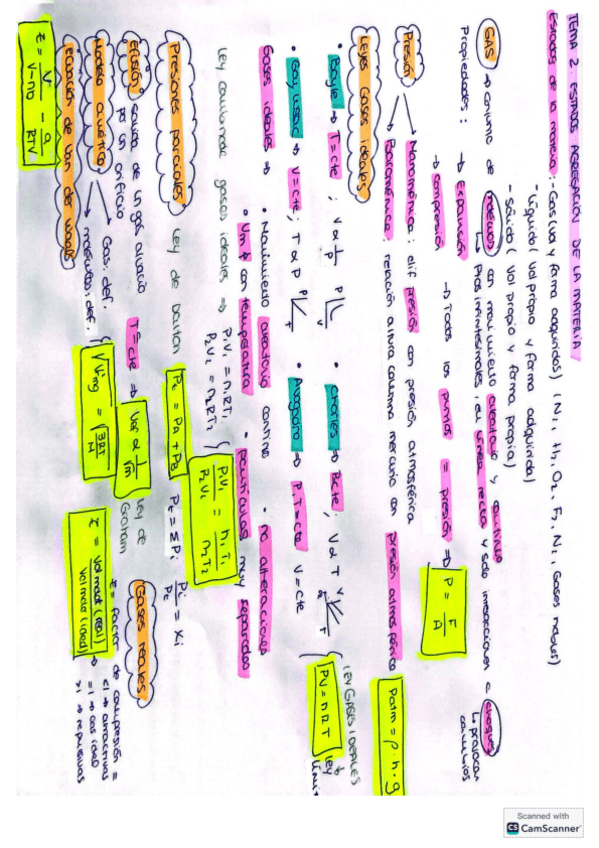 TEMA 2: ESTADOS AGREGACIÓN DE LA MATERIA
Estados de la materia: - Gas (va y forma adquiridos) (N2, H2, O2, F2, Gases nobles)
- Líquido (vol propio y forma adquirida)
- Sólido (vol propio y forma propia)
GAS → conjunto de moléculas con movimiento aleatorio y continuo
↳ Ptos infinitesimales, en línea recta y solo interacciones choques
↳ provocan cambios
Propiedades: → Expansión
→ compresión → Todos los puntos = presión ⇒ P = F/A
Presión
Manométrica: dif presión con presión atmosférica
Barométrica: relación altura columna mercurio con presión atmosférica Patm = ρ · h · g
Leyes Gases ideales
LEY GASES IDEALES
• Boyle ⇒ T=cte; V α 1/P P V • Charles ⇒ P=cte; V α T V T
PV = nRT
• Gay Lussac ⇒ V=cte; T α P P T • Avogadro ⇒ P,T=cte V=cte
Gases ideales ⇒ • Movimiento aleatorio continuo • no atracciones
• Vm con temperatura • partículas muy separadas
Ley combinada gases ideales ⇒ P1V1 = n1RT1
P2V2 = n2RT2
P1V1/P2V2 = n1T1/n2T2
Presiones parciales Ley de Dalton Pt = PA + PB Pt = ΣPi Pi/Pt = Xi
Efusión: salida de un gas al vacío por un orificio T = cte ⇒ Vef α 1/√M Ley de Graham
Modelo cinético Gas: def.
moléculas: def. Vmg = √3RT/M
Gases reales
z = factor de compresión =
z = Vol molar (real) / Vol molar (ideal)
<1 → atractivas
=1 → gas ideal
>1 → repulsivas
Ecuación de Van der Waals
z = V/V-nb - a/RTV
Scanned with
CS CamScanner